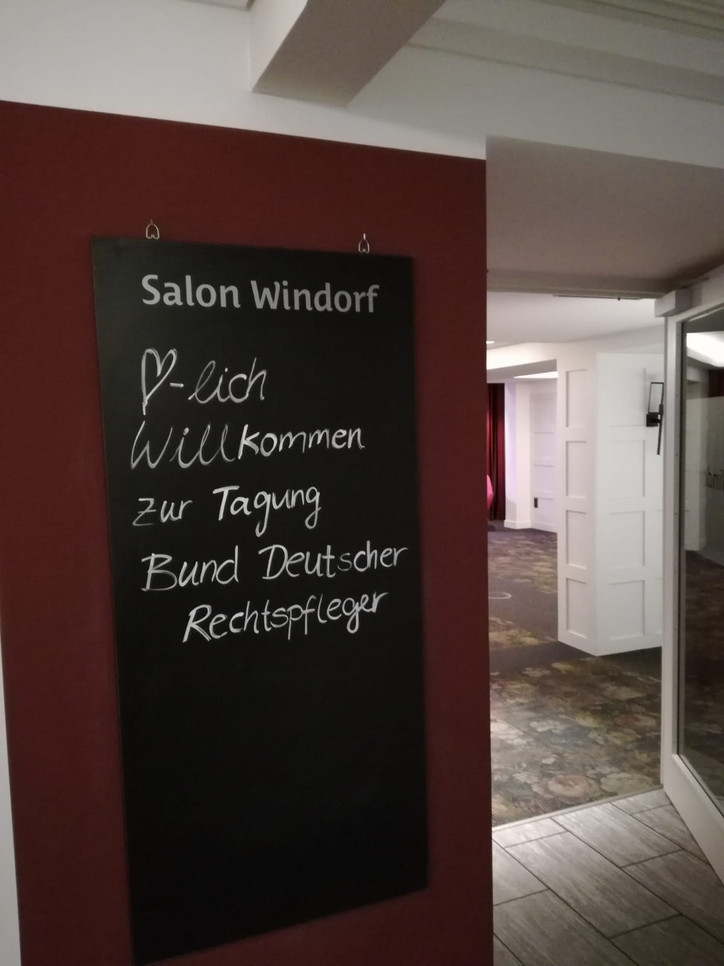 Salon Windorf
♡-lich
Willkommen
zur Tagung
Bund Deutscher
Rechtspfleger